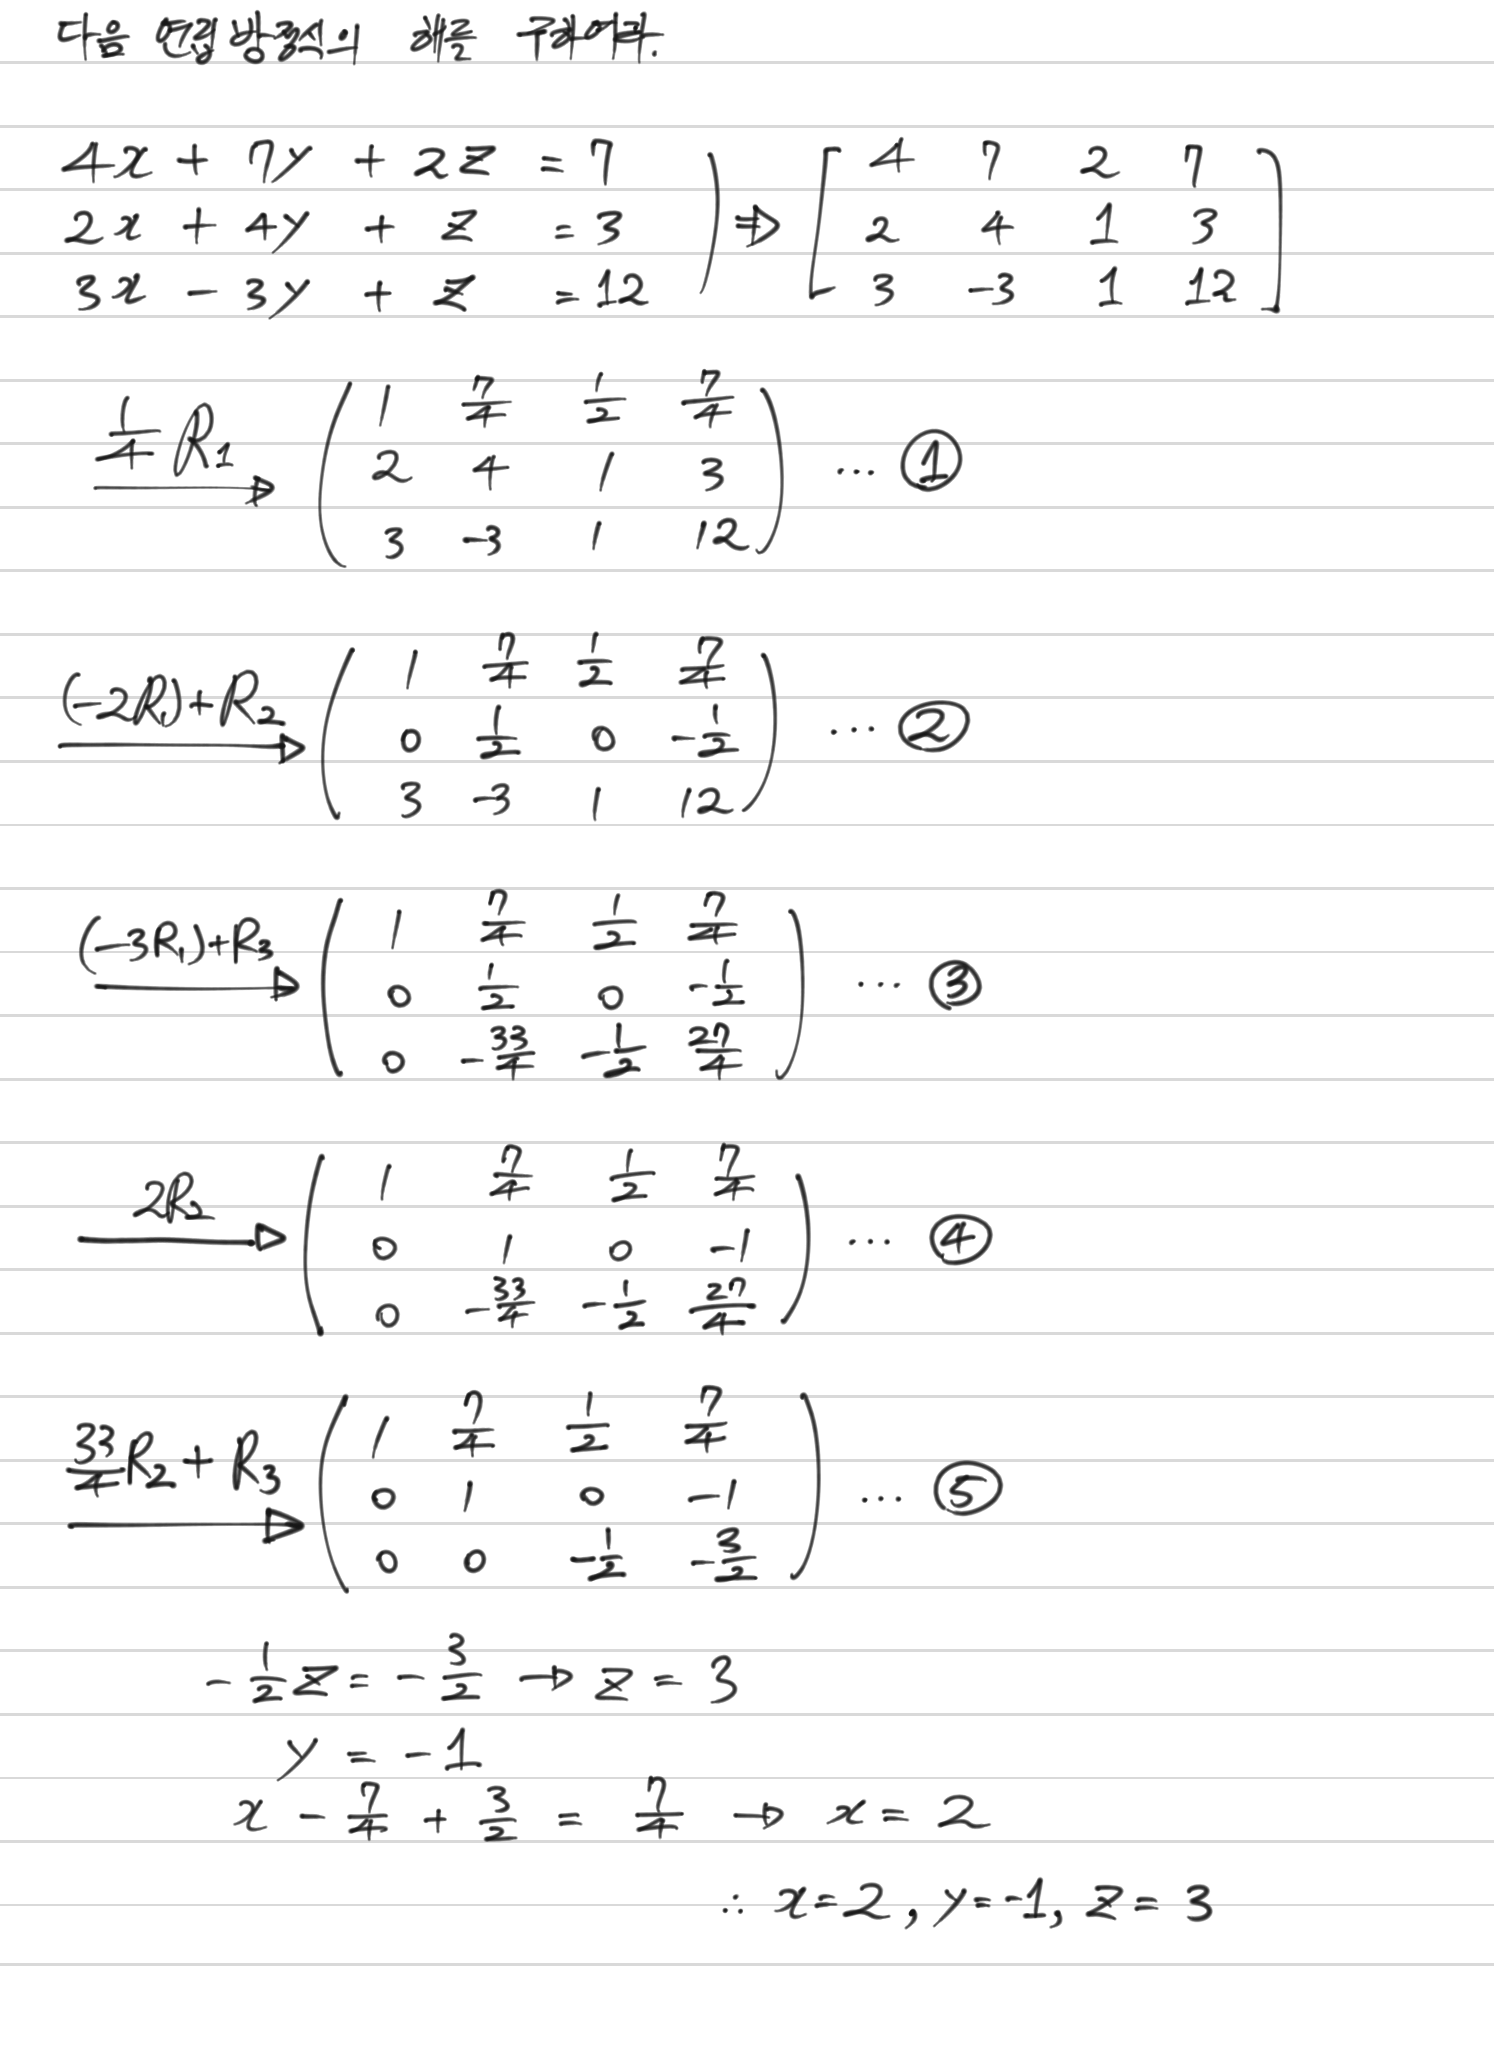 다음 연립방정식의 해를 구하여라.
4x + 7y + 2z = 7 ⇒ [ 4 7 2 7
2x + 4y + z = 3 2 4 1 3
3x - 3y + z = 12 3 -3 1 12 ]
1/4 R₁ → ( 1 7/4 1/2 7/4
2 4 1 3 ⋯ ①
3 -3 1 12 )
(-2R₁)+R₂ → ( 1 7/4 1/2 7/4
0 1/2 0 -1/2 ⋯ ②
3 -3 1 12 )
(-3R₁)+R₃ → ( 1 7/4 1/2 7/4
0 1/2 0 -1/2 ⋯ ③
0 -33/4 -1/2 27/4 )
2R₂ → ( 1 7/4 1/2 7/4
0 1 0 -1 ⋯ ④
0 -33/4 -1/2 27/4 )
33/4 R₂ + R₃ → ( 1 7/4 1/2 7/4
0 1 0 -1 ⋯ ⑤
0 0 -1/2 -3/2 )
-1/2 z = -3/2 → z = 3
y = -1
x - 7/4 + 3/2 = 7/4 → x = 2
∴ x=2, y=-1, z=3